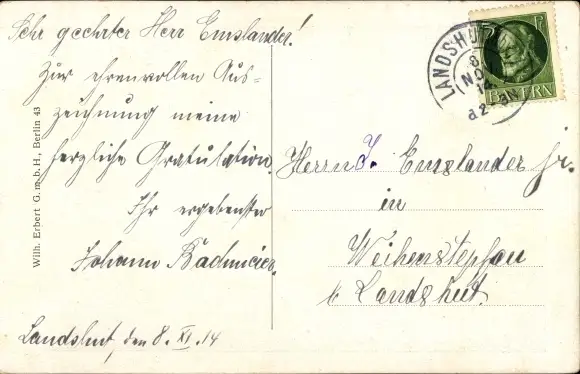 Sehr geehrter Herr Emslander!
Zur ehrenvollen Aus-
zeichnung meine
herzliche Gratulation.
Ihr ergebenster
Johann Bachmeier.
Landshut, den 8. XI. 14
Wilh. Erbert G.m.b.H., Berlin 43
LANDSHUT
8
NOV
BAYERN
Herrn J. Emslander jr.
in
Weihenstephan
b. Landshut.